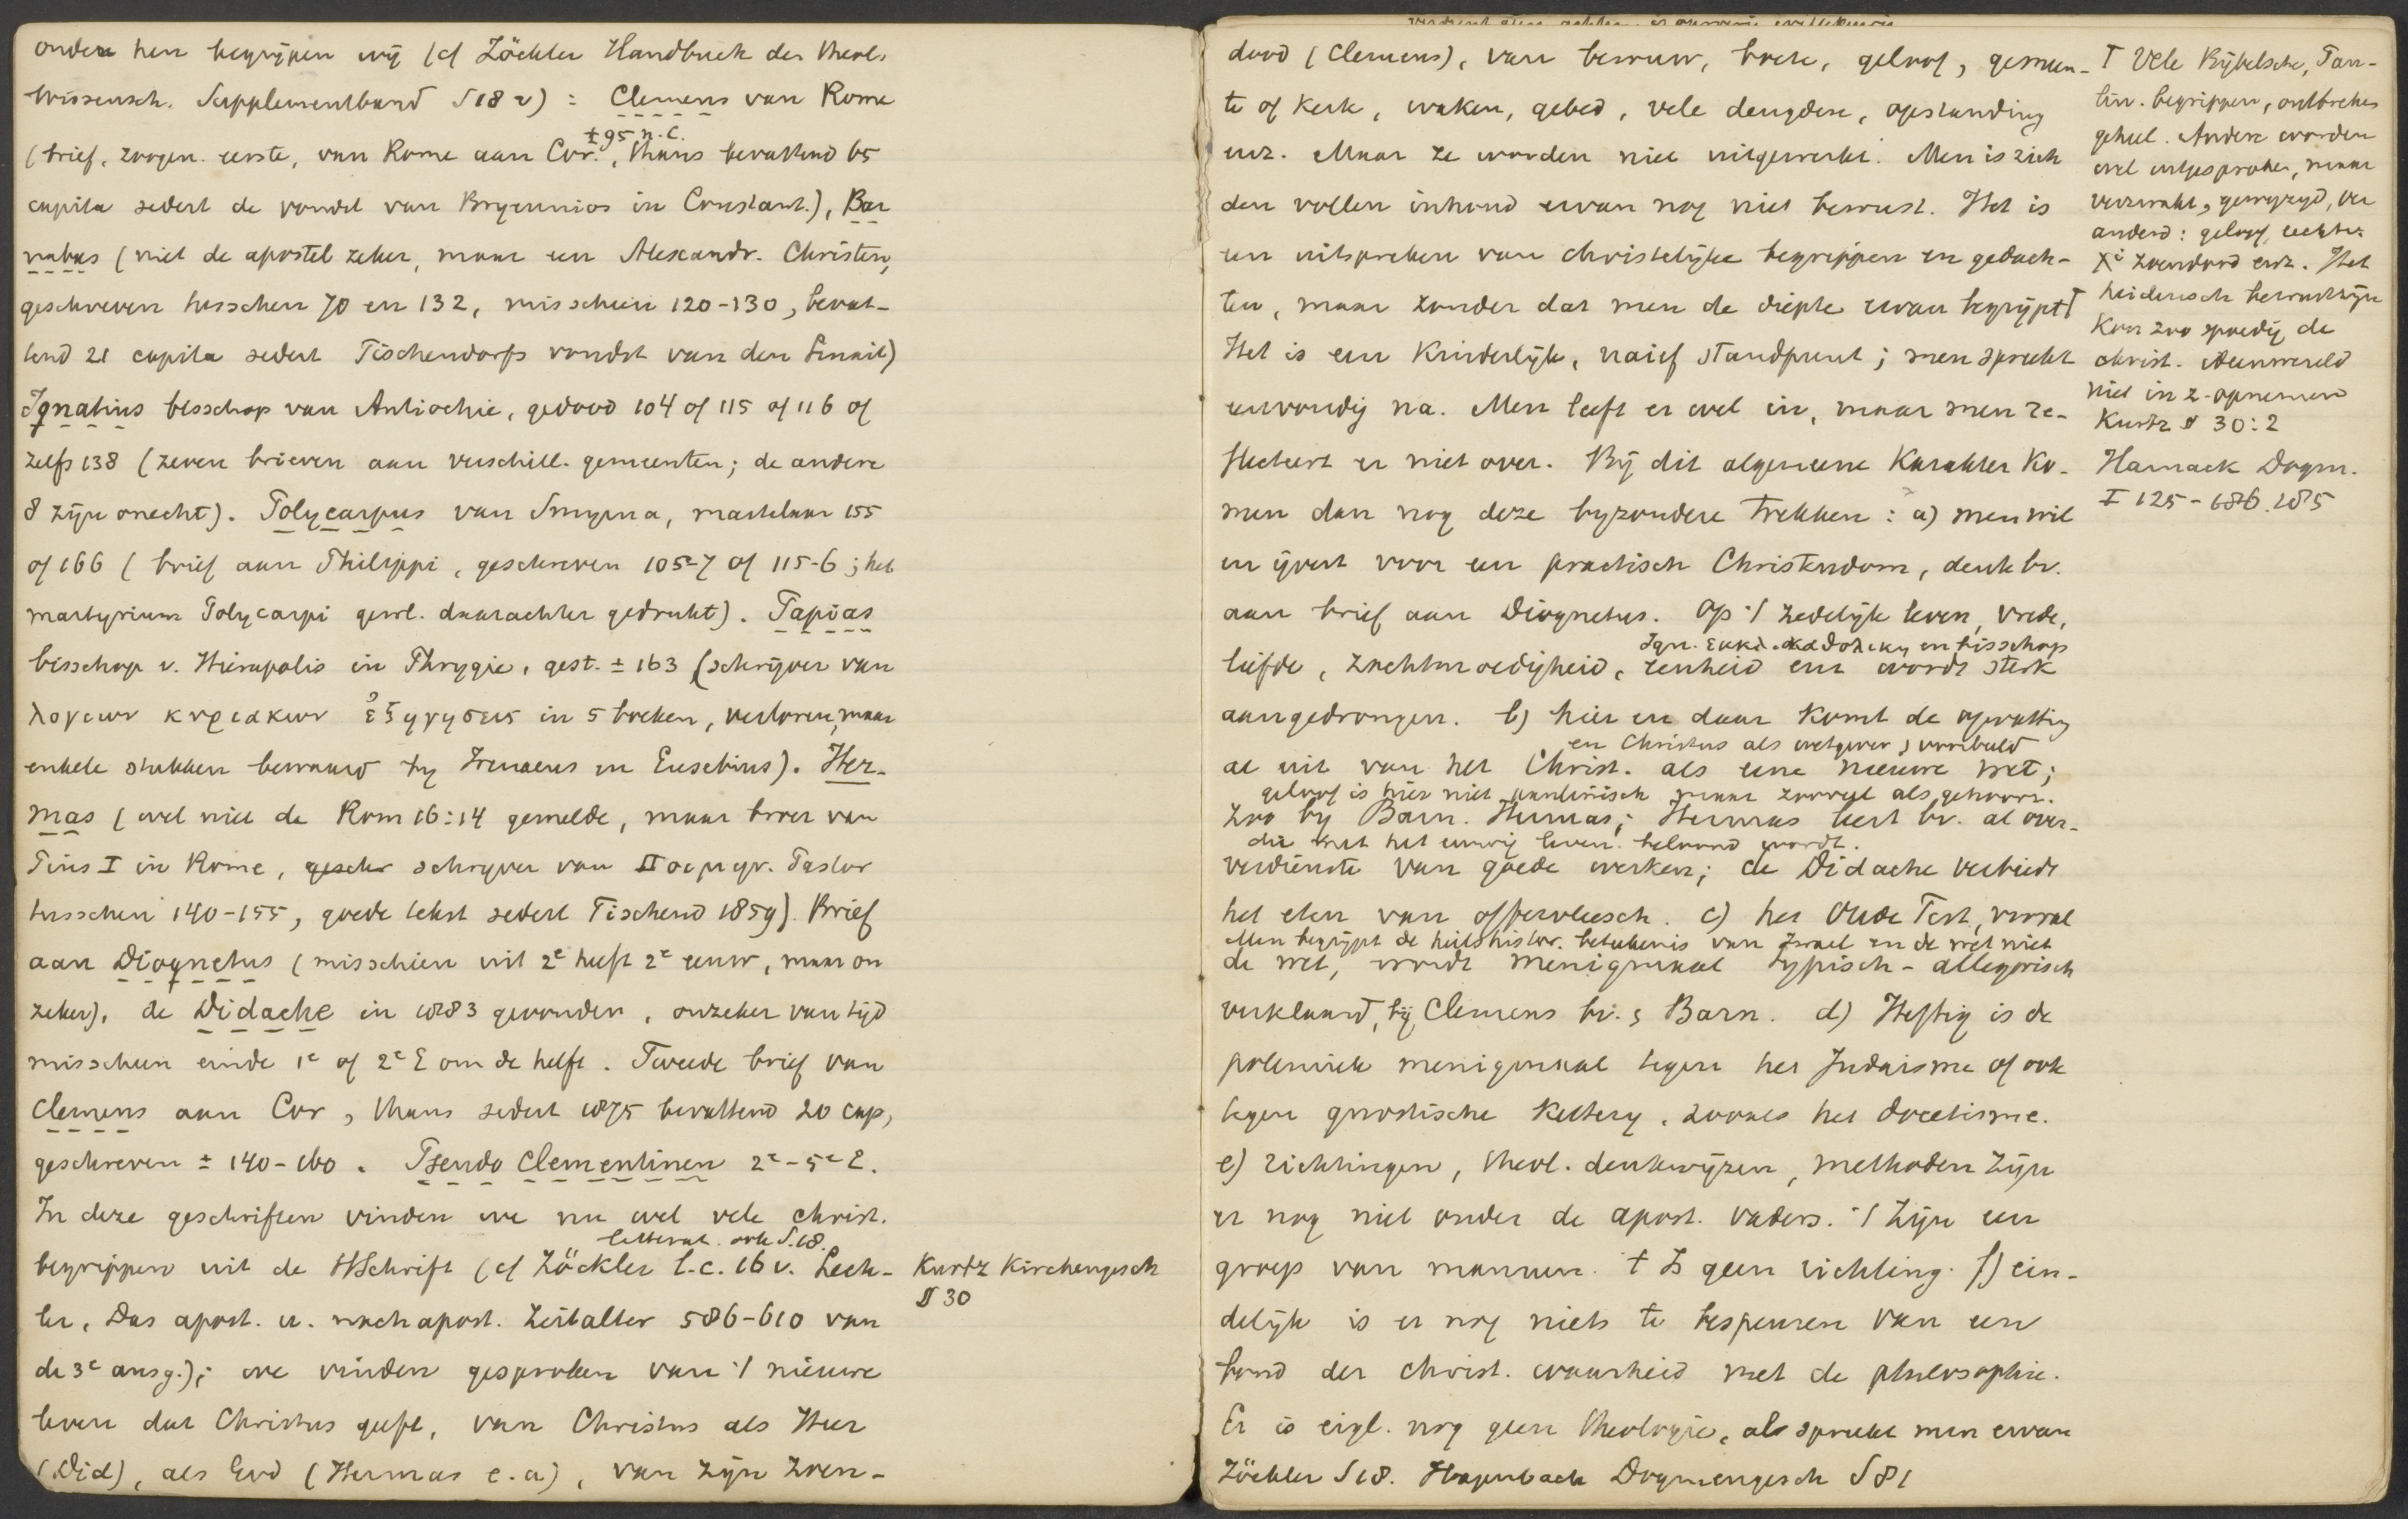 onder hen begrijpen wij (cf Zöckler Handbuch der theol.
Wissensch. Supplementband § 18 v) : Clemens van Rome
± 95 n. C.
(brief, zoogen. eerste, van Rome aan Cor., thans bevattend 65
capita sedert de vondst van Bryennios in Constant.), Bar
nabas (niet de apostel zeker, maar een Alexandr. Christen,
geschreven tusschen 70 en 132, misschien 120-130, bevat-
tend 21 capita sedert Tischendorfs vondst van den Sinait)
Ignatius bisschop van Antiochie, gedood 104 of 115 of 116 of
zelfs 138 (zeven brieven aan verschill. gemeenten; de andere
8 zijn onecht). Polycarpus van Smyrna, martelaar 155
of 166 (brief aan Philippi, geschreven 105-7 of 115-6; het
martyrium Polycarpi gewl. daarachter gedrukt). Papias
bisschop v. Hierapolis in Phrygie, gest. ± 163 (schrijver van
λογιων κυριακων ἐξηγησεις in 5 boeken, verloren, maar
enkele stukken bewaard by Irenaeus en Eusebius). Her-
mas (wel niet de Rom 16:14 gemelde, maar broer van
Pius I in Rome, geschr schryver van Ποιμην. Pastor
tusschen 140-155, goede tekst sedert Tischend 1859). Brief
aan Diognetus (misschien uit 2e helft 2e eeuw, maar on
zeker), de Didache in 1883 gevonden, onzeker van tijd
misschien einde 1e of 2e E om de helft. Tweede brief van
Clemens aan Cor, thans sedert 1875 bevattend 20 cap,
geschreven ± 140-160. Pseudo Clementinen 2e-5e E.
In deze geschriften vinden we nu wel vele christ.
letterat. ook § 18.
begrippen uit de HSchrift (cf Zöckler l.c. 16 v. Lech-
ler, Das apost. u. nachapost. Zeitalter 586-610 van
de 3e ausg.); we vinden gesproken van 't nieuwe
leven dat Christus geeft, van Christus als Heer
(Did), als God (Hermas e.a), van zijn zoen-
Kurtz Kirchengesch
§ 30
dood (Clemens), van berouw, boete, geloof, gemeen-
te of Kerk, waken, gebed, vele deugden, opstanding
enz. Maar ze worden niet uitgewerkt. Men is zich
den vollen inhoud ervan nog niet bewust. Het is
een uitspreken van christelijke begrippen en gedach-
ten, maar zonder dat men de diepte ervan begrijpt †
Het is een Kinderlijk, naief standpunt; men spreekt
eenvoudig na. Men leeft er wel in, maar men re-
flecteert er niet over. Bij dit algemeene Karakter Ko-
men dan nog deze byzondere trekken: a) men wil
en ijvert voor een practisch Christendom, denk bv.
aan brief aan Diognetus. Op 't zedelijk leven, vrede,
Ign. εκκλ. καθολικη en bisschop
liefde, zachtmoedigheid, eenheid enz wordt sterk
aangedrongen. b) hier en daar Komt de opvatting
en Christus als wetgever, voorbeeld
al uit van het Christ. als eene nieuwe wet;
geloof is hier niet paulinisch maar zooveel als gehoorz.
zoo by Barn. Hermas; Hermas leert bv. al over-
die met het eeuwig leven beloond wordt.
verdienste van goede werken; de Didache verbiedt
het eten van offervleesch. c) het Oude Test, vooral
Men begrijpt de heilshistor. beteekenis van Israel en de wet niet
de wet, wordt menigmaal typisch-allegorisch
verklaard, bij Clemens bv. & Barn. d) Heftig is de
polemiek menigmaal tegen het Judaisme of ook
tegen gnostische Kettery, zooals het docetisme.
e) richtingen, theol. denkwijzen, methoden zijn
er nog niet onder de apost. vaders. 't Zijn een
groep van mannen. 't Is geen richting. f) ein-
delijk is er nog niets te bespeuren van een
band der christ. waarheid met de philosophie.
Er is eigl. nog geen theologie, al spreekt men ervan
Zöckler § 18. Hagenbach Dogmengesch § 81
† Vele Bijbelsche, Pau-
lin. begrippen, ontbreken
geheel. Andere worden
wel uitgesproken, maar
verzwakt, gewyzigd, ver
anderd: geloof, rechtv.
Xi zoendood enz. Het
heidensch bewustzijn
Kon zoo spoedig de
christ. ideenwereld
niet in z. opnemen
Kurtz § 30:2
Harnack Dogm.
I 125-186. 1885